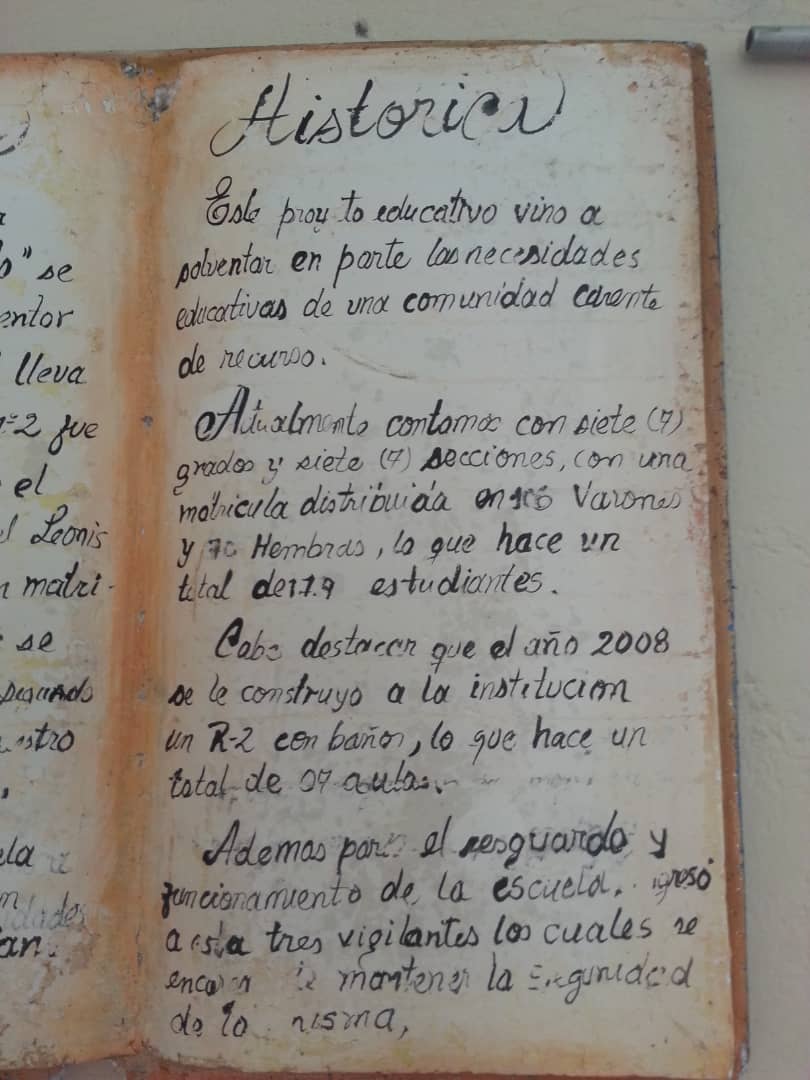 "se
entor
lleva
-2 fue
el
Leonis
matri-
se
segundo
ela
an.
Historica
Este proy to educativo vino a
solventar en parte las necesidades
educativas de una comunidad carente
de recurso.
Atualmente contamos con siete (7)
grados y siete (7) secciones, con una
matricula distribuida en Varones
y Hembras, lo que hace un
total de 179 estudiantes.
Cabe destacar que el año 2008
se le construyo a la institucion
un R-2 con baños, lo que hace un
total de 07 aulas.
Ademas para el resguardo y
funcionamiento de la escuela. igresó
a esta tres vigilantes los cuales se
mantener la seguridad
de la misma,